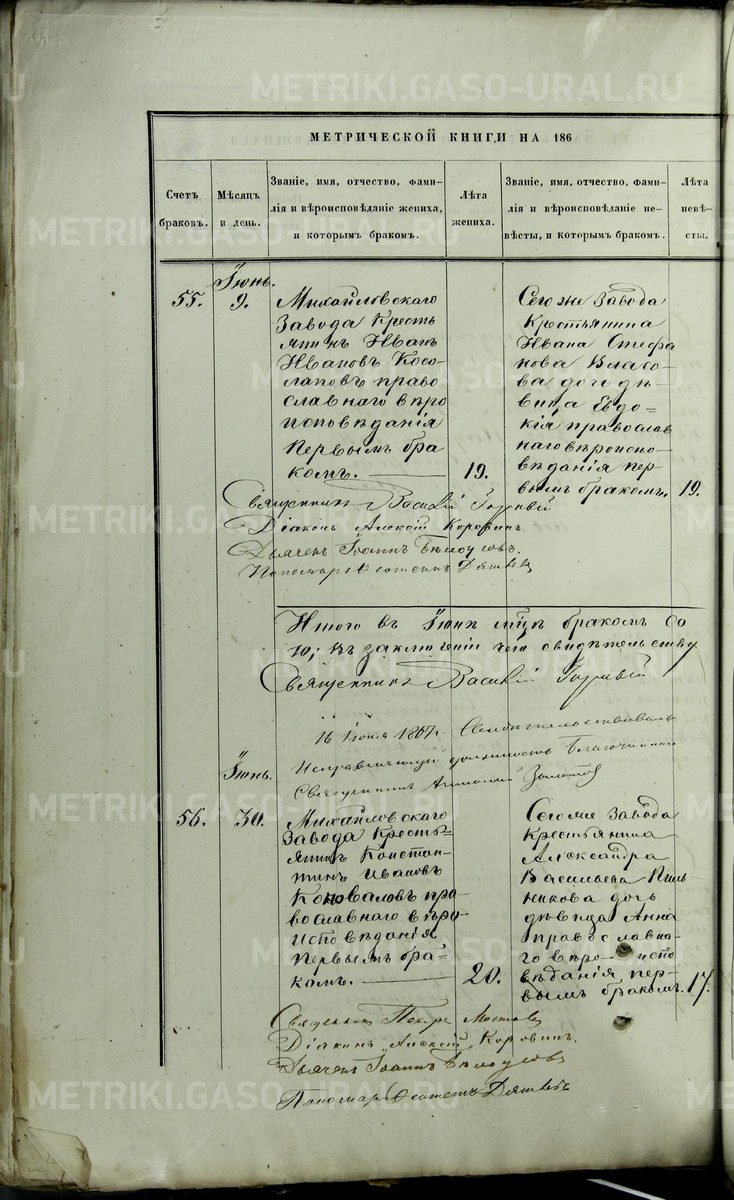 METRIKI.GASO-URAL.RU
МЕТРИЧЕСКОЙ КНИГИ НА 186
Счетъ браковъ.
Мѣсяцъ и день.
Званіе, имя, отчество, фами-
лія и вѣроисповѣданіе жениха,
и которымъ бракомъ.
Лѣта жениха.
Званіе, имя, отчество, фами-
лія и вѣроисповѣданіе не-
вѣсты, и которымъ бракомъ.
Лѣта невѣ-
сты.
Іюнь.
55.
9.
Михайловскаго
Завода Кресть
янинъ Иванъ
Ивановъ Косо-
лаповъ право
славнаго вѣро
исповѣданія
первымъ бра
комъ.
19.
Сегоже Завода
Крестьянина
Ивана Стефа
нова Власо-
ва дочь дѣ-
вица Евдо-
кія православ
наго вѣроиспо-
вѣданія пер-
вымъ бракомъ.
19.
Священникъ Василій
Діаконъ Алексій Коровинъ.
Дьячекъ Іоаннъ Бѣлоусовъ.
Пономарь
Итого въ Іюнѣ мцѣ бракомъ со
10; въ заключеніи чего свидѣтельствую
Священникъ Василій
16 Іюля 1867г. Свидѣтельствовалъ
Исправляющій должность Благочиннаго
Священникъ
Іюнь.
56.
30.
Михайловскаго
Завода Кресть-
янинъ Констан-
тинъ Ивановъ
Коноваловъ пра-
вославнаго вѣро-
исповѣданія
первымъ бра-
комъ.
20.
Сегоже Завода
Крестьянина
Александра
Васильева Пиль-
никова дочь
дѣвица Анна
православна-
го вѣро- испо
вѣданія пер-
вымъ бракомъ.
17.
Священникъ Петръ
Діаконъ Алексій Коровинъ.
Дьячекъ Іоаннъ Бѣлоусовъ
Пономарь